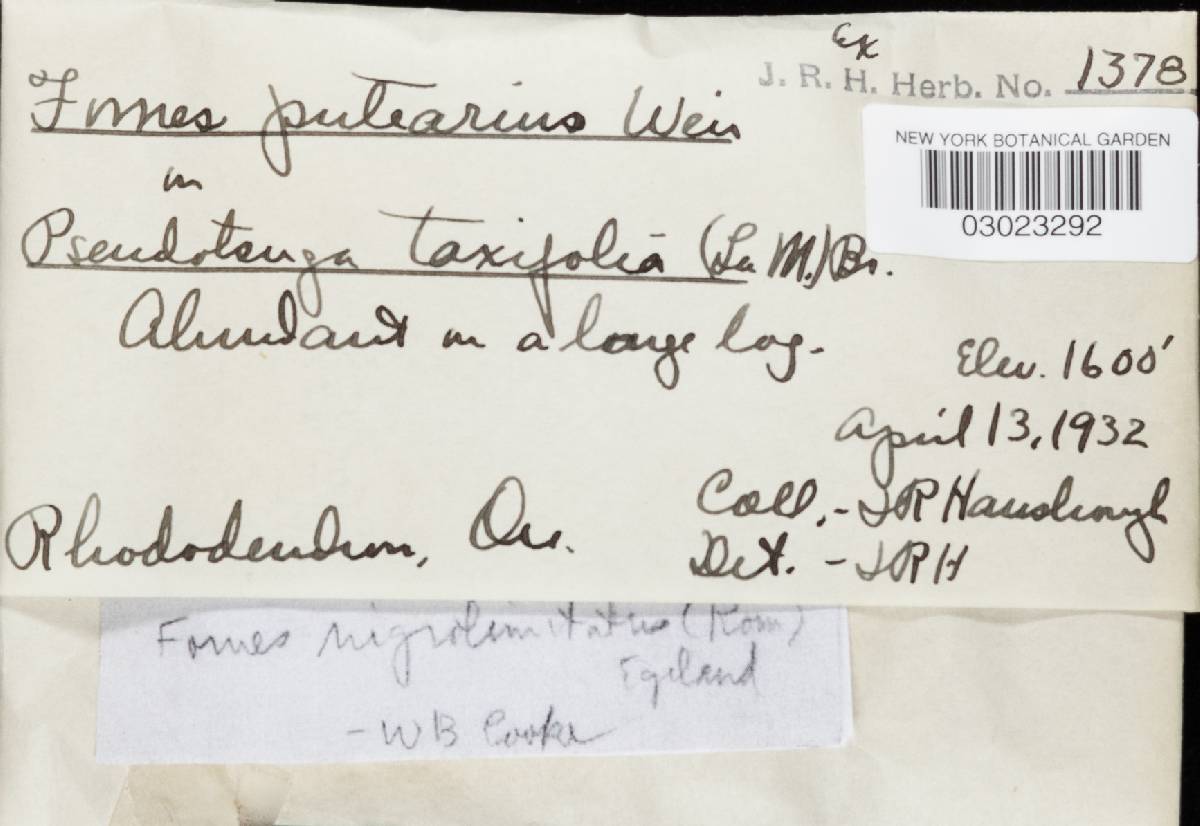 Ex
J. R. H. Herb. No. 1378
Fomes putearius Weir
NEW YORK BOTANICAL GARDEN
03023292
on
Pseudotsuga taxifolia (La M.) Br.
Abundant on a large log.
Elev. 1600'
April 13, 1932
Coll. - JR Hansbrough
Rhododendron, Or.
Det. - JRH
Fomes nigrolimitatus (Rom)
Egeland
- WB Cooke